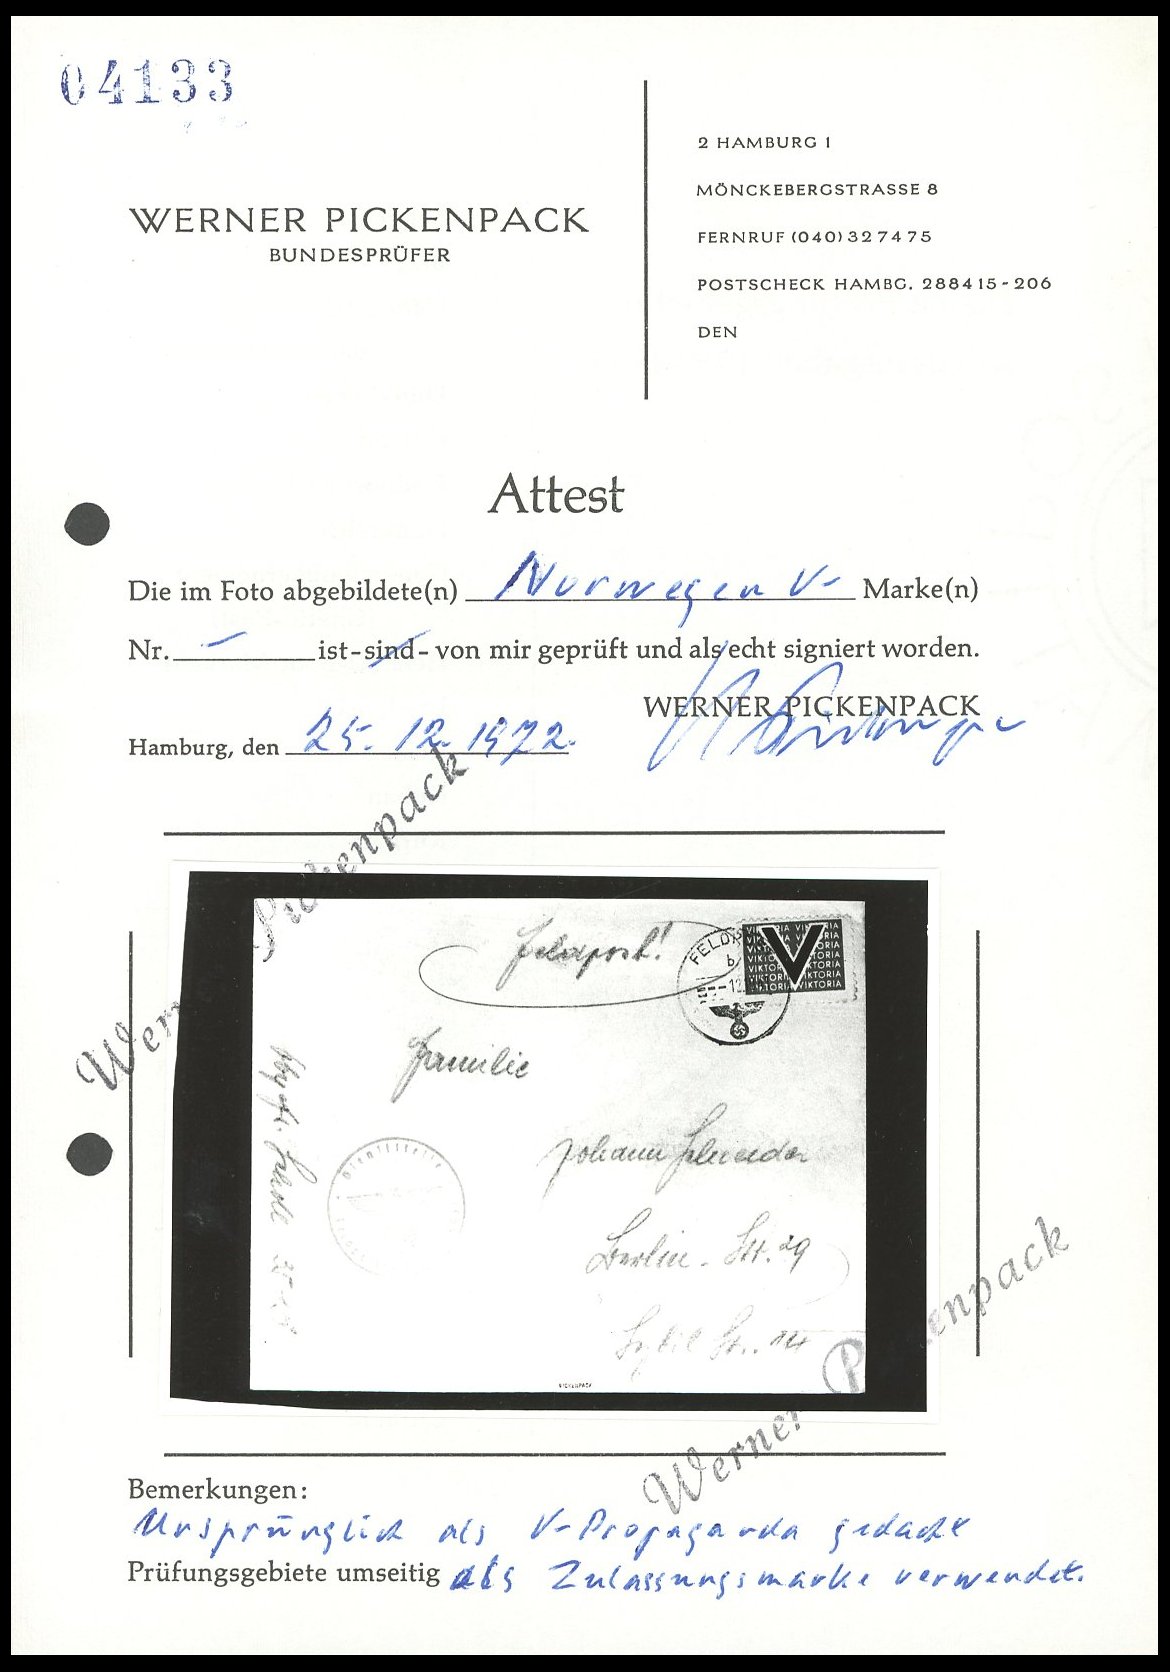 04133
WERNER PICKENPACK
BUNDESPRÜFER
2 HAMBURG 1
MÖNCKEBERGSTRASSE 8
FERNRUF (040) 32 74 75
POSTSCHECK HAMBG. 288415-206
DEN
Attest
Die im Foto abgebildete(n) Norwegen V- Marke(n)
Nr. – ist-sind- von mir geprüft und als echt signiert worden.
WERNER PICKENPACK
Hamburg, den 25. 12. 1972.
Werner Pickenpack
Feldpost!
FELDP
b
VIKTORIA VIKTORIA
V
Familie
Johann
Berlin-
29
Str. 14
PICKENPACK
Werner Pickenpack
Bemerkungen:
Ursprünglich als V-Propaganda gedacht
Prüfungsgebiete umseitig als Zulassungsmarke verwendet.